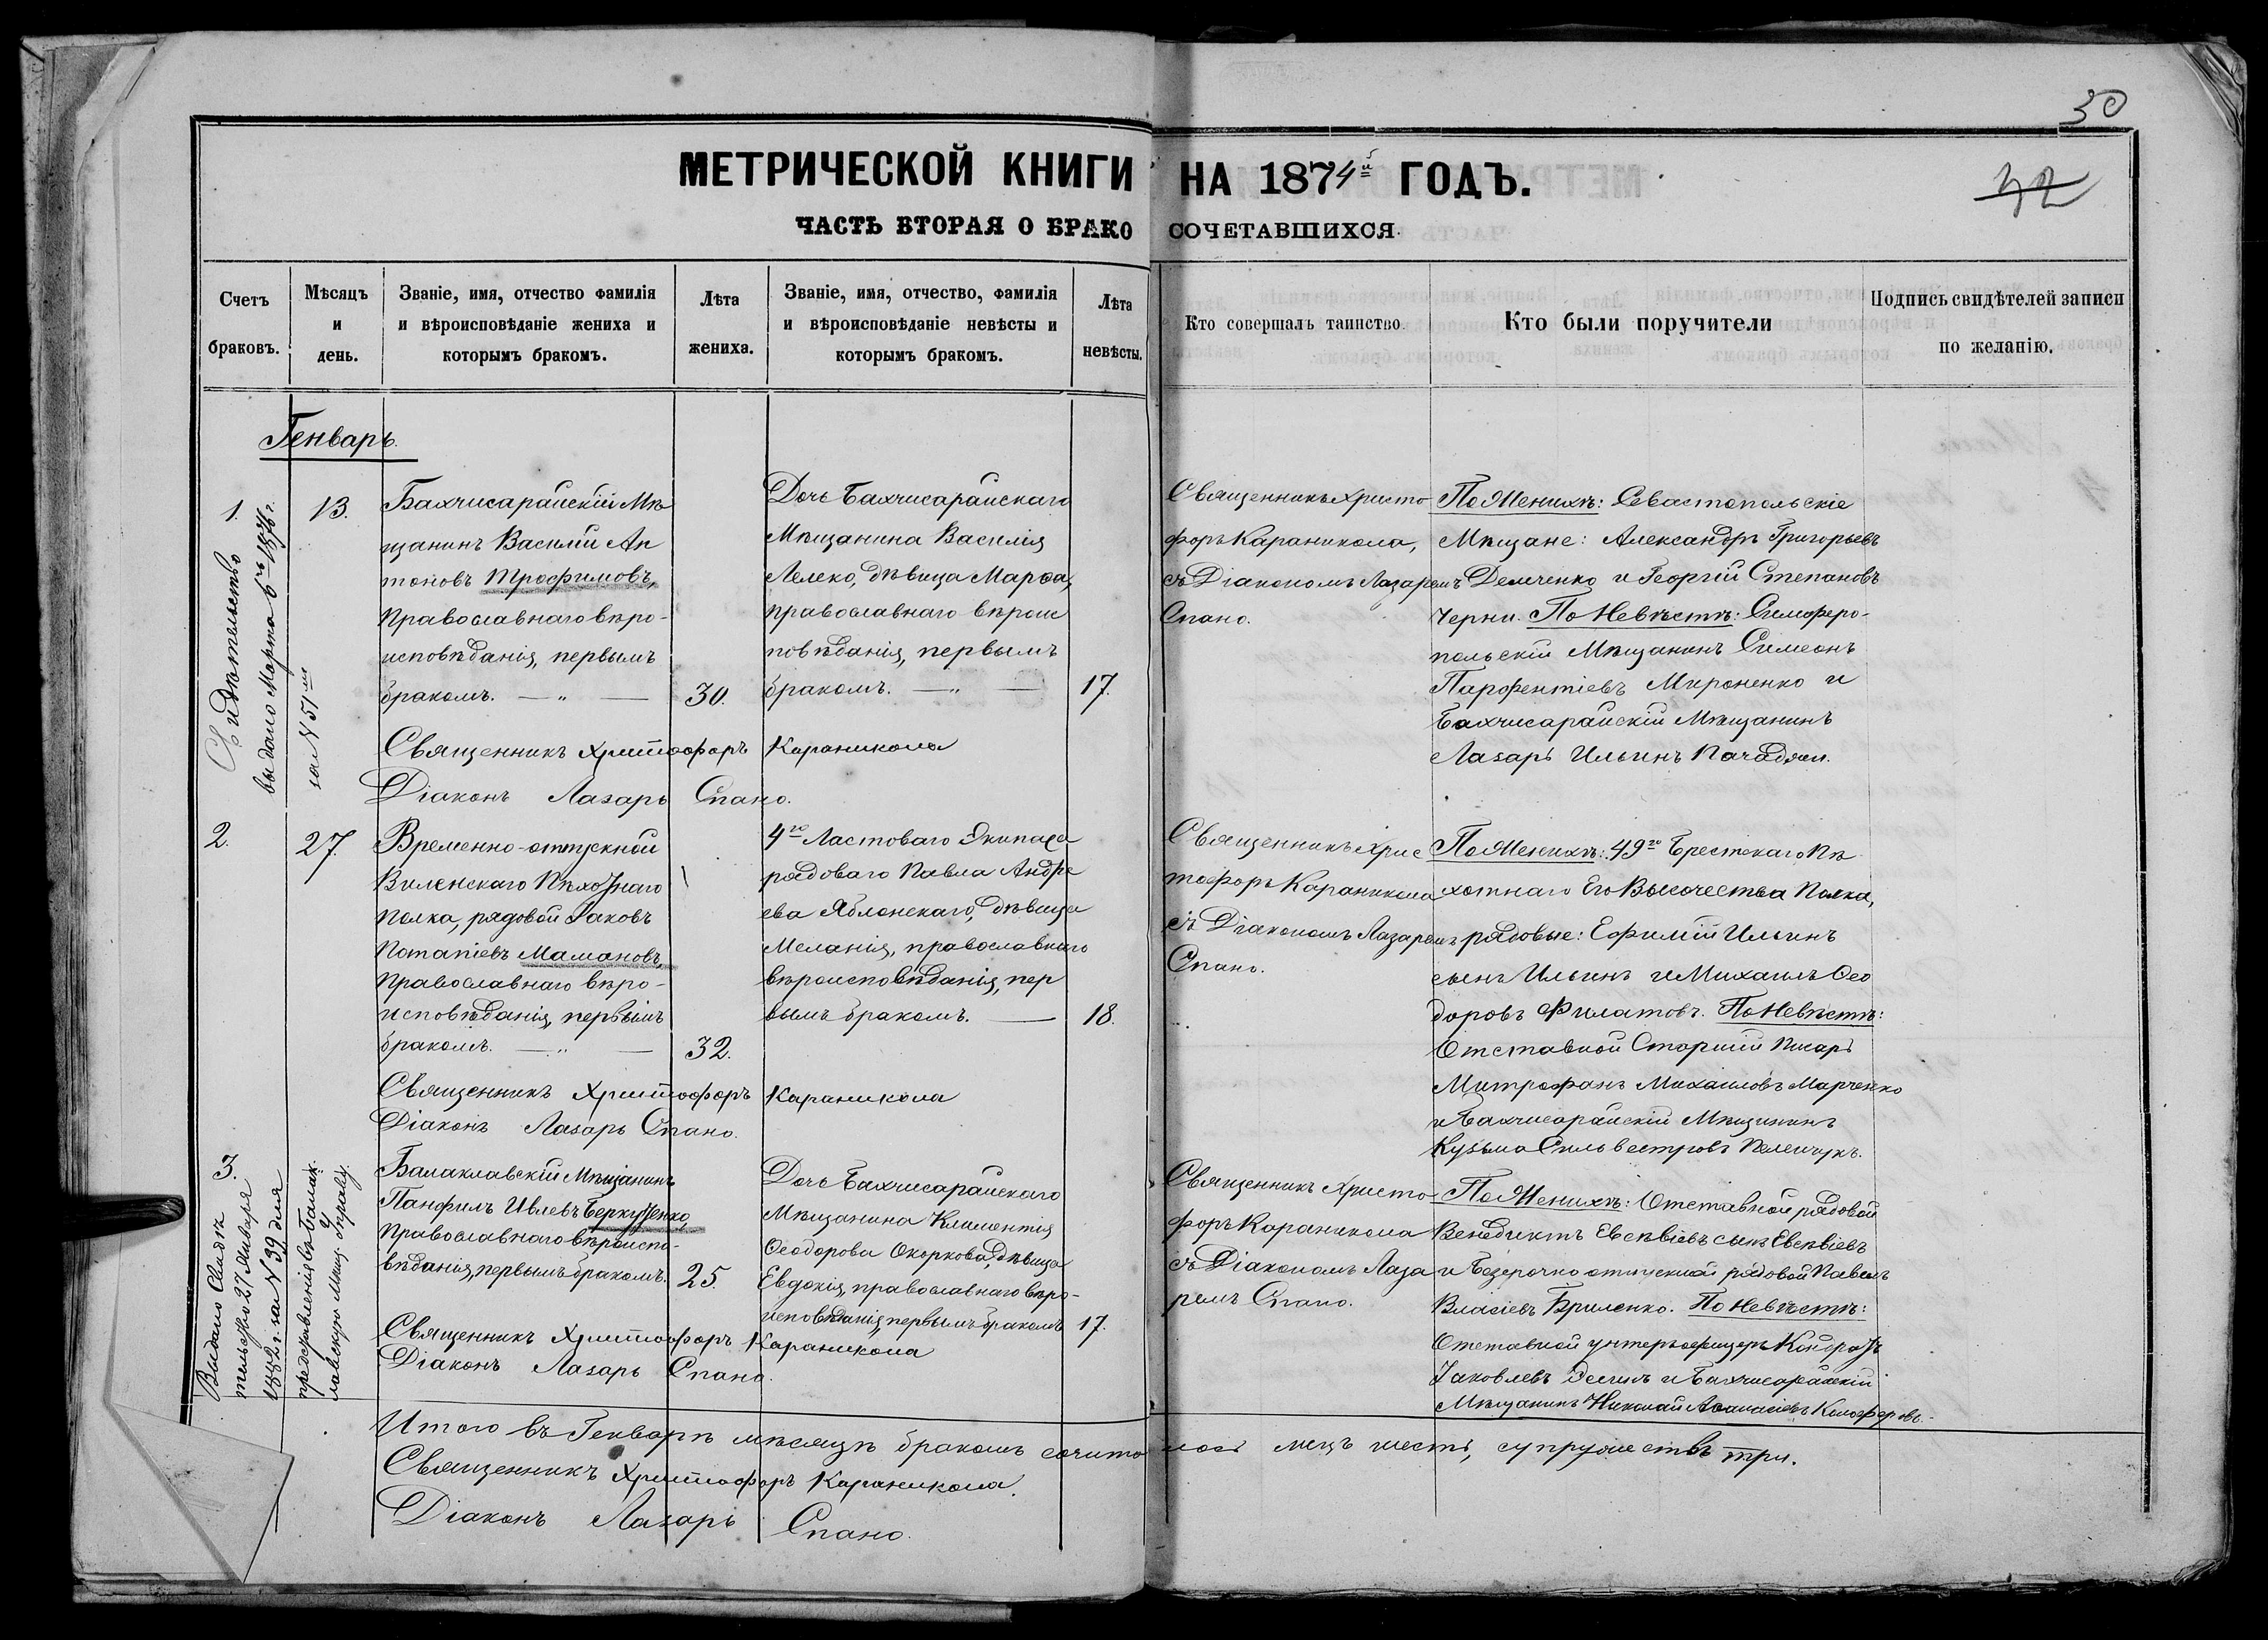 30
МЕТРИЧЕСКОЙ КНИГИ НА 1874й ГОДЪ.
42
ЧАСТЬ ВТОРАЯ О БРАКОСОЧЕТАВШИХСЯ.
Счетъ
браковъ.
Мѣсяцъ
и
день.
Званіе, имя, отчество фамилія
и вѣроисповѣданіе жениха и
которымъ бракомъ.
Лѣта
жениха.
Званіе, имя, отчество, фамилія
и вѣроисповѣданіе невѣсты и
которымъ бракомъ.
Лѣта
невѣсты.
Кто совершалъ таинство.
Кто были поручители
Подпись свидѣтелей записи
по желанію.
Генварь.
1.
Свидѣтельство
выдано Марта 6го 1876 г.
за N 51м
13.
Бахчисарайскій Мѣ
щанинъ Василій Ан
тоновъ Трофимовъ,
Православнаго вѣро-
исповѣданія, первымъ
бракомъ. — „ —
30.
Дочь Бахчисарайскаго
Мѣщанина Василія
Лелеко, дѣвица Марѳа,
православнаго вѣрои
повѣданія, первымъ
бракомъ. — „ —
17.
Священникъ Христо
форъ Караникола,
съ Діакономъ Лазаремъ
Спано.
По Женихѣ: Севастопольскіе
Мѣщане: Александръ Григорьевъ
Демченко и Георгій Степановъ
Черни. По Невѣстѣ: Симферо-
польскій Мѣщанинъ Симеонъ
Парфентіевъ Мироненко и
Бахчисарайскій Мѣщанинъ
Лазарь Ильинъ Пачаджи.
Священникъ Христофоръ Караникола
Діаконъ Лазарь Спано.
2.
27.
Временно-отпускной
Виленскаго Пѣхотнаго
Полка, рядовой Іаковъ
Потапіевъ Мамановъ,
Православнаго вѣро-
исповѣданія, первымъ
бракомъ. — „ —
32.
4го Ластоваго Экипажа
рядоваго Павла Андре
ева Яблонскаго, дѣвица
Меланія, православнаго
вѣроисповѣданія, пер
вымъ бракомъ. —
18.
Священникъ Хрис
тофоръ Караникола
съ Діакономъ Лазаремъ
Спано.
По Женихѣ: 49го Брестскаго Пѣ
хотнаго Его Высочества Полка,
рядовые: Ефимій Ильинъ
сынъ Ильинъ и Михаилъ Ѳео
доровъ Филатовъ. По Невѣстѣ:
Отставной Старшій Писарь
Митрофанъ Михаиловъ Марченко
и Бахчисарайскій Мѣщанинъ
Кузьма Сильвестровъ Пелещукъ.
Священникъ Христофоръ Караникола
Діаконъ Лазарь Спано.
3.
Выдано Свидѣ
тельство 27 Января
1882 г. за N 39 для
представленія въ Балак
лавскую Мѣщ. Управу.
Балаклавскій Мѣщанинъ
Панфилъ Ивлевъ Беркутенко,
Православнаго вѣроиспо-
вѣданія, первымъ бракомъ.
25.
Дочь Бахчисарайскаго
Мѣщанина Климентія
Ѳеодорова Окоркова, дѣвица
Евдокія, православнаго вѣро-
исповѣданія, первымъ бракомъ
17.
Священникъ Христо
форъ Караникола
съ Діакономъ Лаза
ремъ Спано.
По Женихѣ: Отставной рядовой
Венедиктъ Евсевіевъ сынъ Евсевіевъ
и Безсрочно отпускной рядовой Павелъ
Власіевъ Бриленко. По Невѣстѣ:
Отставной унтеръ офицеръ Кондратъ
Іаковлевъ и Бахчисарайскій
Мѣщанинъ Николай Аѳанасіевъ
Священникъ Христофоръ Караникола
Діаконъ Лазарь Спано.
Итого въ Генварѣ мѣсяцѣ бракомъ сочиталось лицъ шесть, супружествъ три.
Священникъ Христофоръ Караникола.
Діаконъ Лазарь Спано.